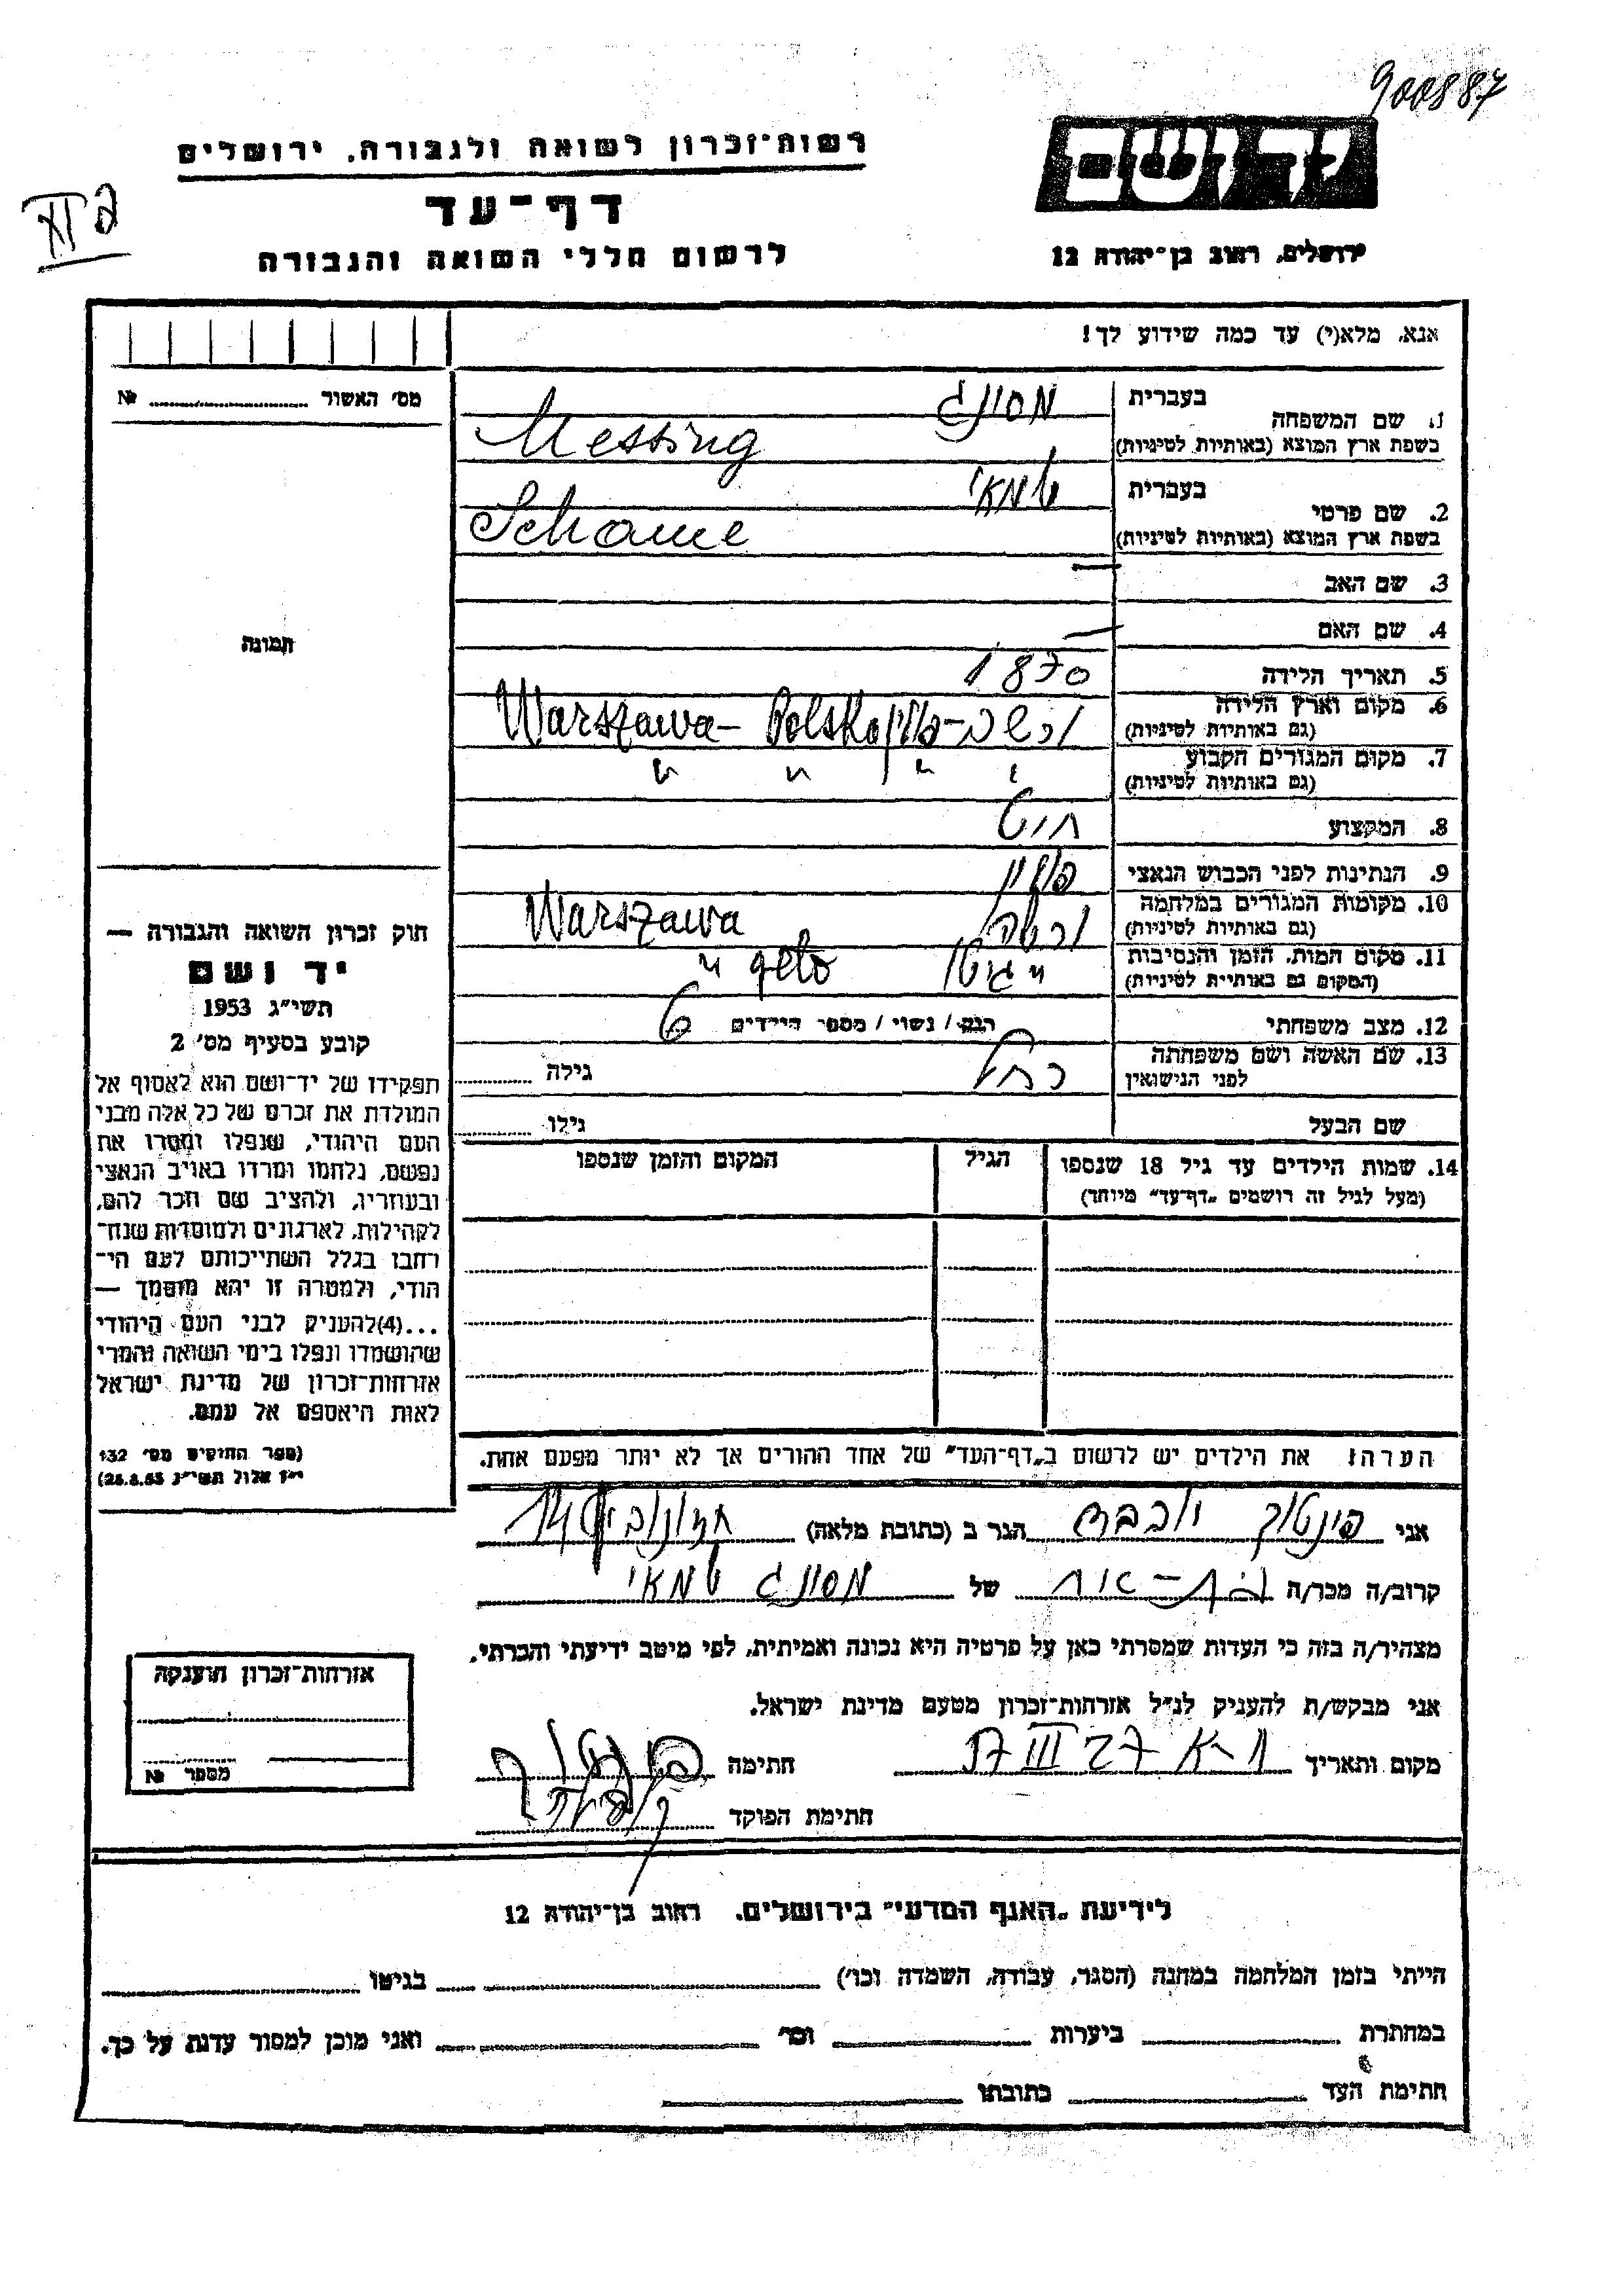 900887
רשות־זכרון לשואה ולגבורה, ירושלים
יד ושם
דף־עד
לרשום חללי השואה והגבורה
ירושלים, רחוב בן־יהודה 12
אנא, מלא(י) עד כמה שידוע לך!
מס' האשור № 
1. שם המשפחה בעברית מסונג
בשפת ארץ המוצא (באותיות לטיניות) Messing
2. שם פרטי בעברית שמאי
בשפת ארץ המוצא (באותיות לטיניות) Schame
3. שם האב —
4. שם האם —
תמונה
5. תאריך הלידה 1870
6. מקום וארץ הלידה (גם באותיות לטיניות) ורשה-פולין Warszawa - Polska
7. מקום המגורים הקבוע (גם באותיות לטיניות) " " " "
8. המקצוע חיט
9. הנתינות לפני הכבוש הנאצי פולין
10. מקומות המגורים במלחמה (גם באותיות לטיניות) ורשה Warszawa
11. מקום המות, הזמן והנסיבות (המקום גם באותיות לטיניות) " גיטו " geto
12. מצב משפחתי רווק / נשוי / מספר הילדים 6
13. שם האשה ושם משפחתה לפני הנישואין רחל גילה
שם הבעל גילו
14. שמות הילדים עד גיל 18 שנספו הגיל המקום והזמן שנספו
(מעל לגיל זה רושמים "דף־עד" מיוחד)
חוק זכרון השואה והגבורה —
יד ושם
תשי"ג 1953
קובע בסעיף מס' 2
תפקידו של יד־ושם הוא לאסוף אל
המולדת את זכרם של כל אלה מבני
העם היהודי, שנפלו ומסרו את
נפשם, נלחמו ומרדו באויב הנאצי
ובעוזריו, ולהציב שם וזכר להם,
לקהילות, לארגונים ולמוסדות שנח־
רבו בגלל השתייכותם לעם הי־
הודי, ולמטרה זו יהא מוסמך —
...(4)להעניק לבני העם היהודי
שהושמדו ונפלו בימי השואה והמרי
אזרחות־זכרון של מדינת ישראל
לאות היאספם אל עמם.
(ספר החוקים מס' 132
י"ז אלול תשי"ג 28.8.53)
הערה: את הילדים יש לרשום ב"דף־העד" של אחד ההורים אך לא יותר מפעם אחת.
אני יוכבד הגר ב (כתובת מלאה) 14
קרוב/ה מכר/ה של מסונג שמאי
מצהיר/ה בזה כי העדות שמסרתי כאן על פרטיה היא נכונה ואמיתית, לפי מיטב ידיעתי והכרתי.
אני מבקש/ת להעניק לנ"ל אזרחות־זכרון מטעם מדינת ישראל.
מקום ותאריך ת-א 27 III 57 חתימה
חתימת הפוקד
אזרחות־זכרון הוענקה
מספר №
לידיעת "האגף המדעי" בירושלים, רחוב בן־יהודה 12
הייתי בזמן המלחמה במחנה (הסגר, עבודה, השמדה וכו') בגיטו
במחתרת ביערות וכו' ואני מוכן למסור עדות על כך.
חתימת העד כתובתו